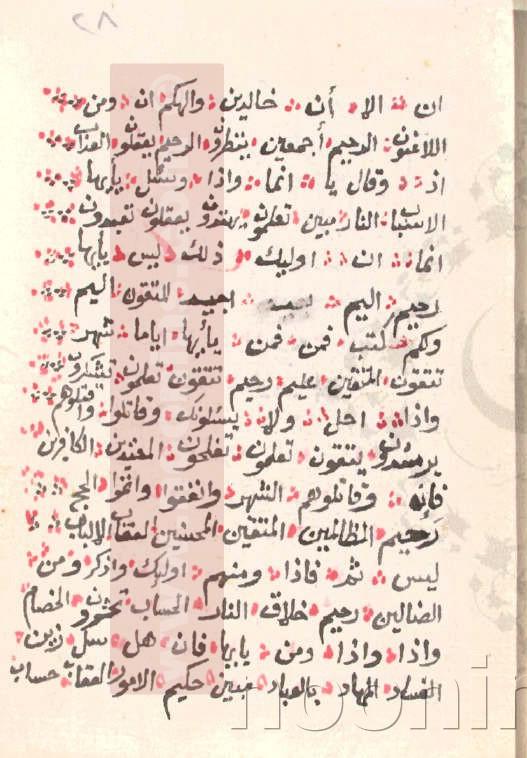 ٢٨
ان الا أن خالدين والهكم ان ومن
اللاعنون الرحيم أجمعين ينظرون الرحيم يعقلون العذاب
اذ وقال يا انما واذا ومثل يأيها
الاسباب النار مبين تعلمون يهتدون يعقلون تعبدون
انما ان اوليك ذلك ليس يأيها
رحيم اليم بعيد للمتقون اليم
ولكم كتب فمن فمن يأيها اياما شهر
تتقون المتقين عليم رحيم تتقون تعلمون تشكرون
واذا احل ولا يسئلونك وقاتلوا واقتلوهم
يرشدون يتقون تعلمون تفلحون المعتدين الكافرين
فان وقاتلوهم الشهر وانفقوا واتموا الحج
رحيم الظالمين المتقين المحسنين العقاب الالباب
ليس ثم فاذا ومنهم اوليك واذكر ومن
الضالين رحيم خلاق النار الحساب تحشرون الخصام
واذا واذا ومن يأيها فان هل سل زين
الفساد المهاد بالعباد مبين حكيم الامور العقاب حساب
noonir